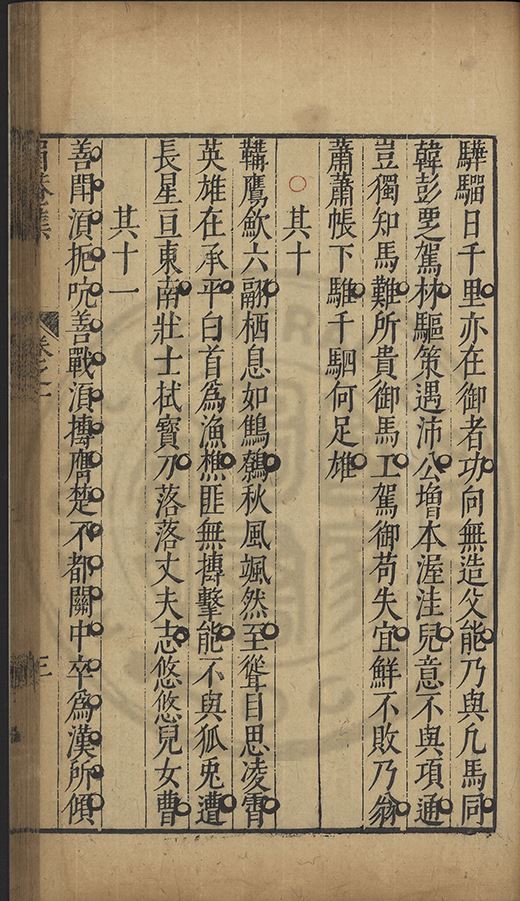 驊騮日千里亦在御者功向無造父能乃與凡馬同
韓彭王駕材驅策遇沛公增本渥洼兒意不與項通
豈獨知馬難所貴御馬工駕御苟失宜鮮不敗乃翁
蕭蕭帳下騅千駟何足雄
其十
鞲鷹歛六翮栖息如鷦鷯秋風颯然至聳目思凌霄
英雄在承平白首為漁樵匪無摶擊能不與狐兎遭
長星亘東南壯士拭寶刀落落丈夫志悠悠兒女曹
其十一
善鬥須扼吭善戰須摶膺楚不都關中卒為漢所傾
卷之一
三